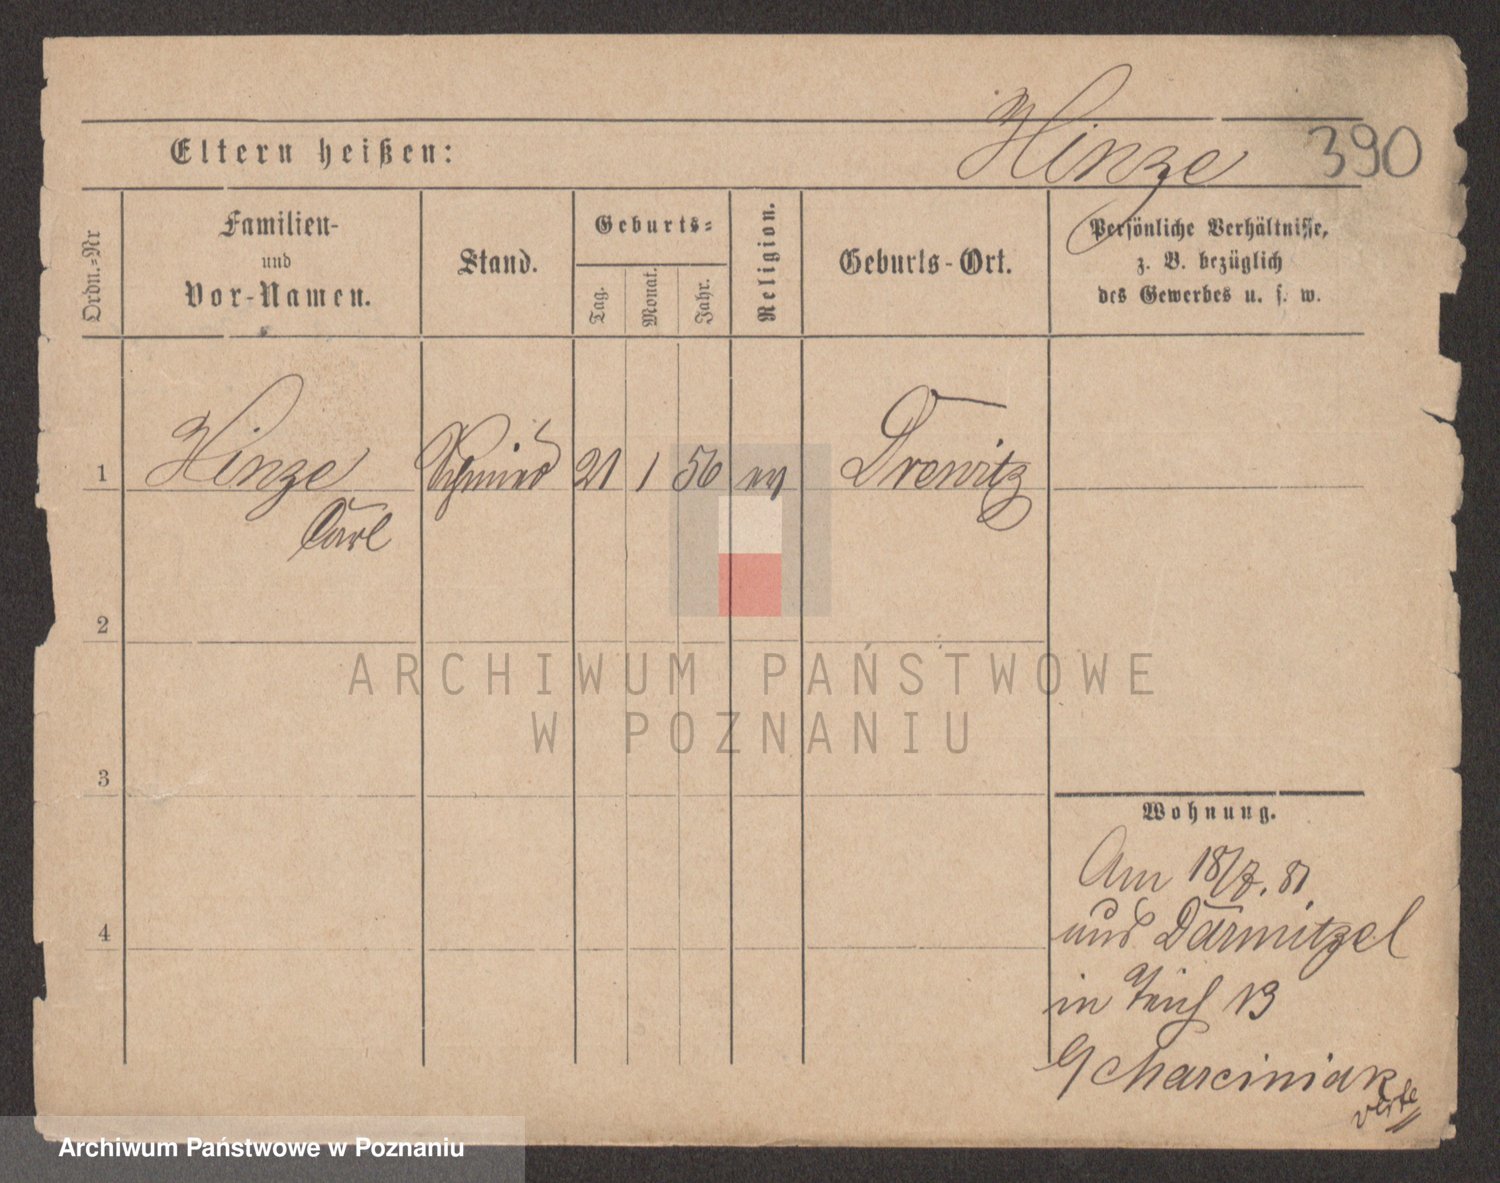 Hinze 390
Eltern heißen:
Ordn.-Nr
Familien-
und
Vor-Namen.
Stand.
Geburts-
Tag.
Monat.
Jahr.
Religion.
Geburts-Ort.
Persönliche Verhältnisse,
z. B. bezüglich
des Gewerbes u. s. w.
1 Hinze Schmied 21 1 56 ev Drewitz
Carl
2
3
4
Wohnung.
Am 18/7. 81.
und Darmitzel
in 13
Marciniak
verte
ARCHIWUM PAŃSTWOWE
W POZNANIU
Archiwum Państwowe w Poznaniu